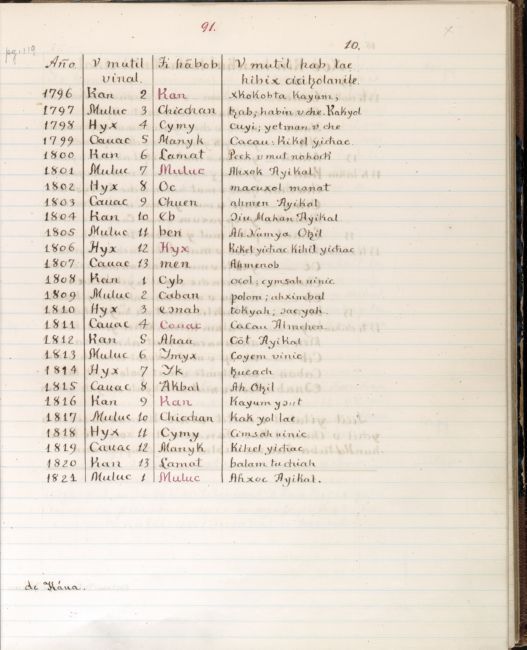 91.
pg. 119
10.
Año v mutil Ti hābob V mutil hab, lae
vinal. hibix ciziholanile.
1796 Kan 2 Kan xKoKobta Kayum;
1797 Muluc 3 Chicchan habin v che. Kakyol
1798 Hyx 4 Cymy Cuyi; yetman v che
1799 Cauac 5 Manyk Cacau. Kikel yichac.
1800 Kan 6 Lamat Peek v mut
1801 Muluc 7 Muluc Ahxok Ayikal
1802 Hyx 8 Oc macuxol manat
1803 Cauac 9 Chuen ahmen Ayikal
1804 Kan 10 Eb Mahan Ayikal
1805 Muluc 11 ben Ah Numya
1806 Hyx 12 Hyx Kikel yichac Kihil yichac
1807 Cauac 13 men Ahmenob
1808 Kan 1 Cyb ocol; cymsah uinic
1809 Muluc 2 Caban polom; ahximbal
1810 Hyx 3 tokyah;
1811 Cauac 4 Couac Cacau Almehen
1812 Kan 5 Ahau Cot Ayikal
1813 Muluc 6 Ymyx Coyem vinic
1814 Hyx 7 Yk
1815 Cauac 8 Akbal Ah
1816 Kan 9 Kan Kayum
1817 Muluc 10 Chicchan Kak yol lae
1818 Hyx 11 Cymy Cimsah uinic
1819 Cauac 12 Manyk Kikel yichac
1820 Kan 13 Lamat balam tu chiah
1821 Muluc 1 Muluc Ahxoc Ayikal.
de Káua.